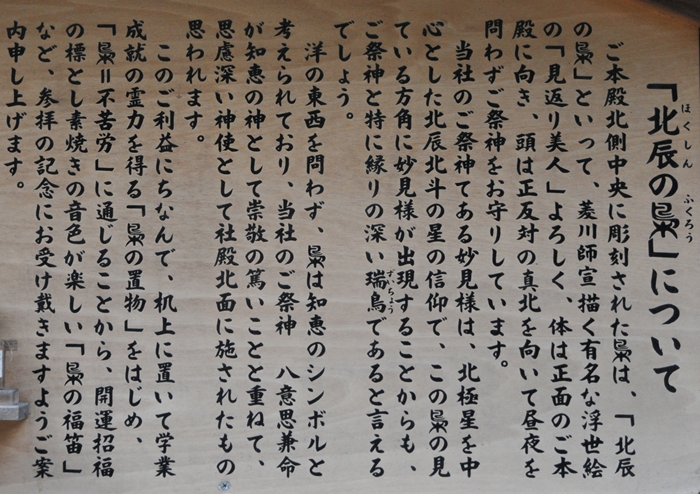 「北辰の梟」について
ほくしん ふくろう
ご本殿北側中央に彫刻された梟は、「北辰
の梟」といって、菱川師宣描く有名な浮世絵
の「見返り美人」よろしく、体は正面のご本
殿に向き、頭は正反対の真北を向いて昼夜を
問わずご祭神をお守りしています。
当社のご祭神である妙見様は、北極星を中
心とした北辰北斗の星の信仰で、この梟の見
ている方角に妙見様が出現することからも、
ご祭神と特に縁りの深い瑞鳥であると言える
ずいちょう
でしょう。
洋の東西を問わず、梟は知恵のシンボルと
考えられており、当社のご祭神 八意思兼命
が知恵の神として崇敬の篤いことと重ねて、
思慮深い神使として社殿北面に施されたもの
思われます。
このご利益にちなんで、机上に置いて学業
成就の霊力を得る「梟の置物」をはじめ、
「梟=不苦労」に通じることから、開運招福
の標とし素焼きの音色が楽しい「梟の福笛」
など、参拝の記念にお受け戴きますようご案
内申し上げます。